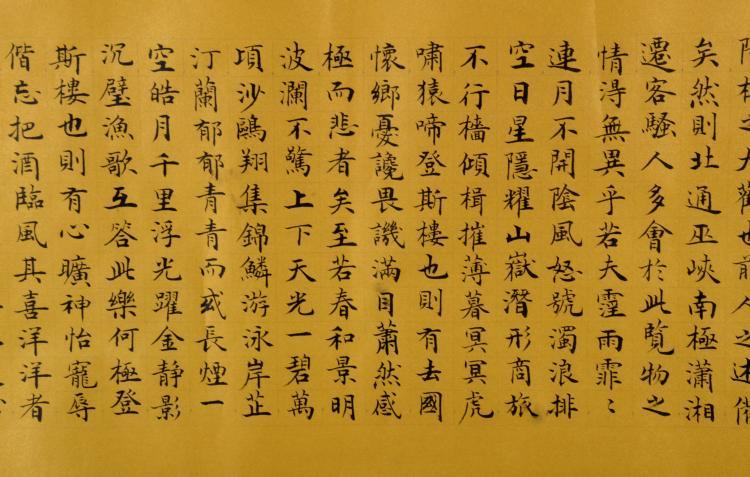 陽樓之大觀也前人之述備
矣然則北通巫峽南極瀟湘
遷客騷人多會於此覽物之
情得無異乎若夫霪雨霏〻
連月不開陰風怒號濁浪排
空日星隱耀山嶽潛形商旅
不行檣傾楫摧薄暮冥冥虎
嘯猿啼登斯樓也則有去國
懷鄉憂讒畏譏滿目蕭然感
極而悲者矣至若春和景明
波瀾不驚上下天光一碧萬
頃沙鷗翔集錦鱗游泳岸芷
汀蘭郁郁青青而或長煙一
空皓月千里浮光躍金靜影
沉璧漁歌互答此樂何極登
斯樓也則有心曠神怡寵辱
偕忘把酒臨風其喜洋洋者